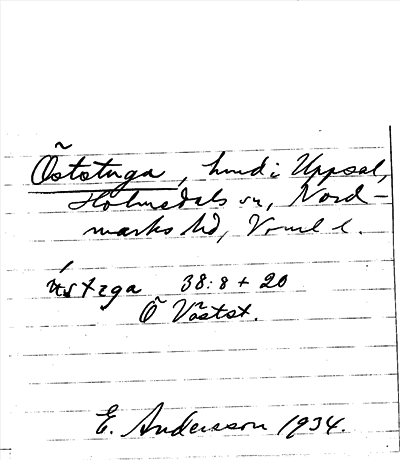 Õststuga, hmd i Uppsal,
Holmedals sn, Nord-
marks hd, Vrml l.
ústzga 38:8 + 20
Õ Västst.
E. Andersson 1934.